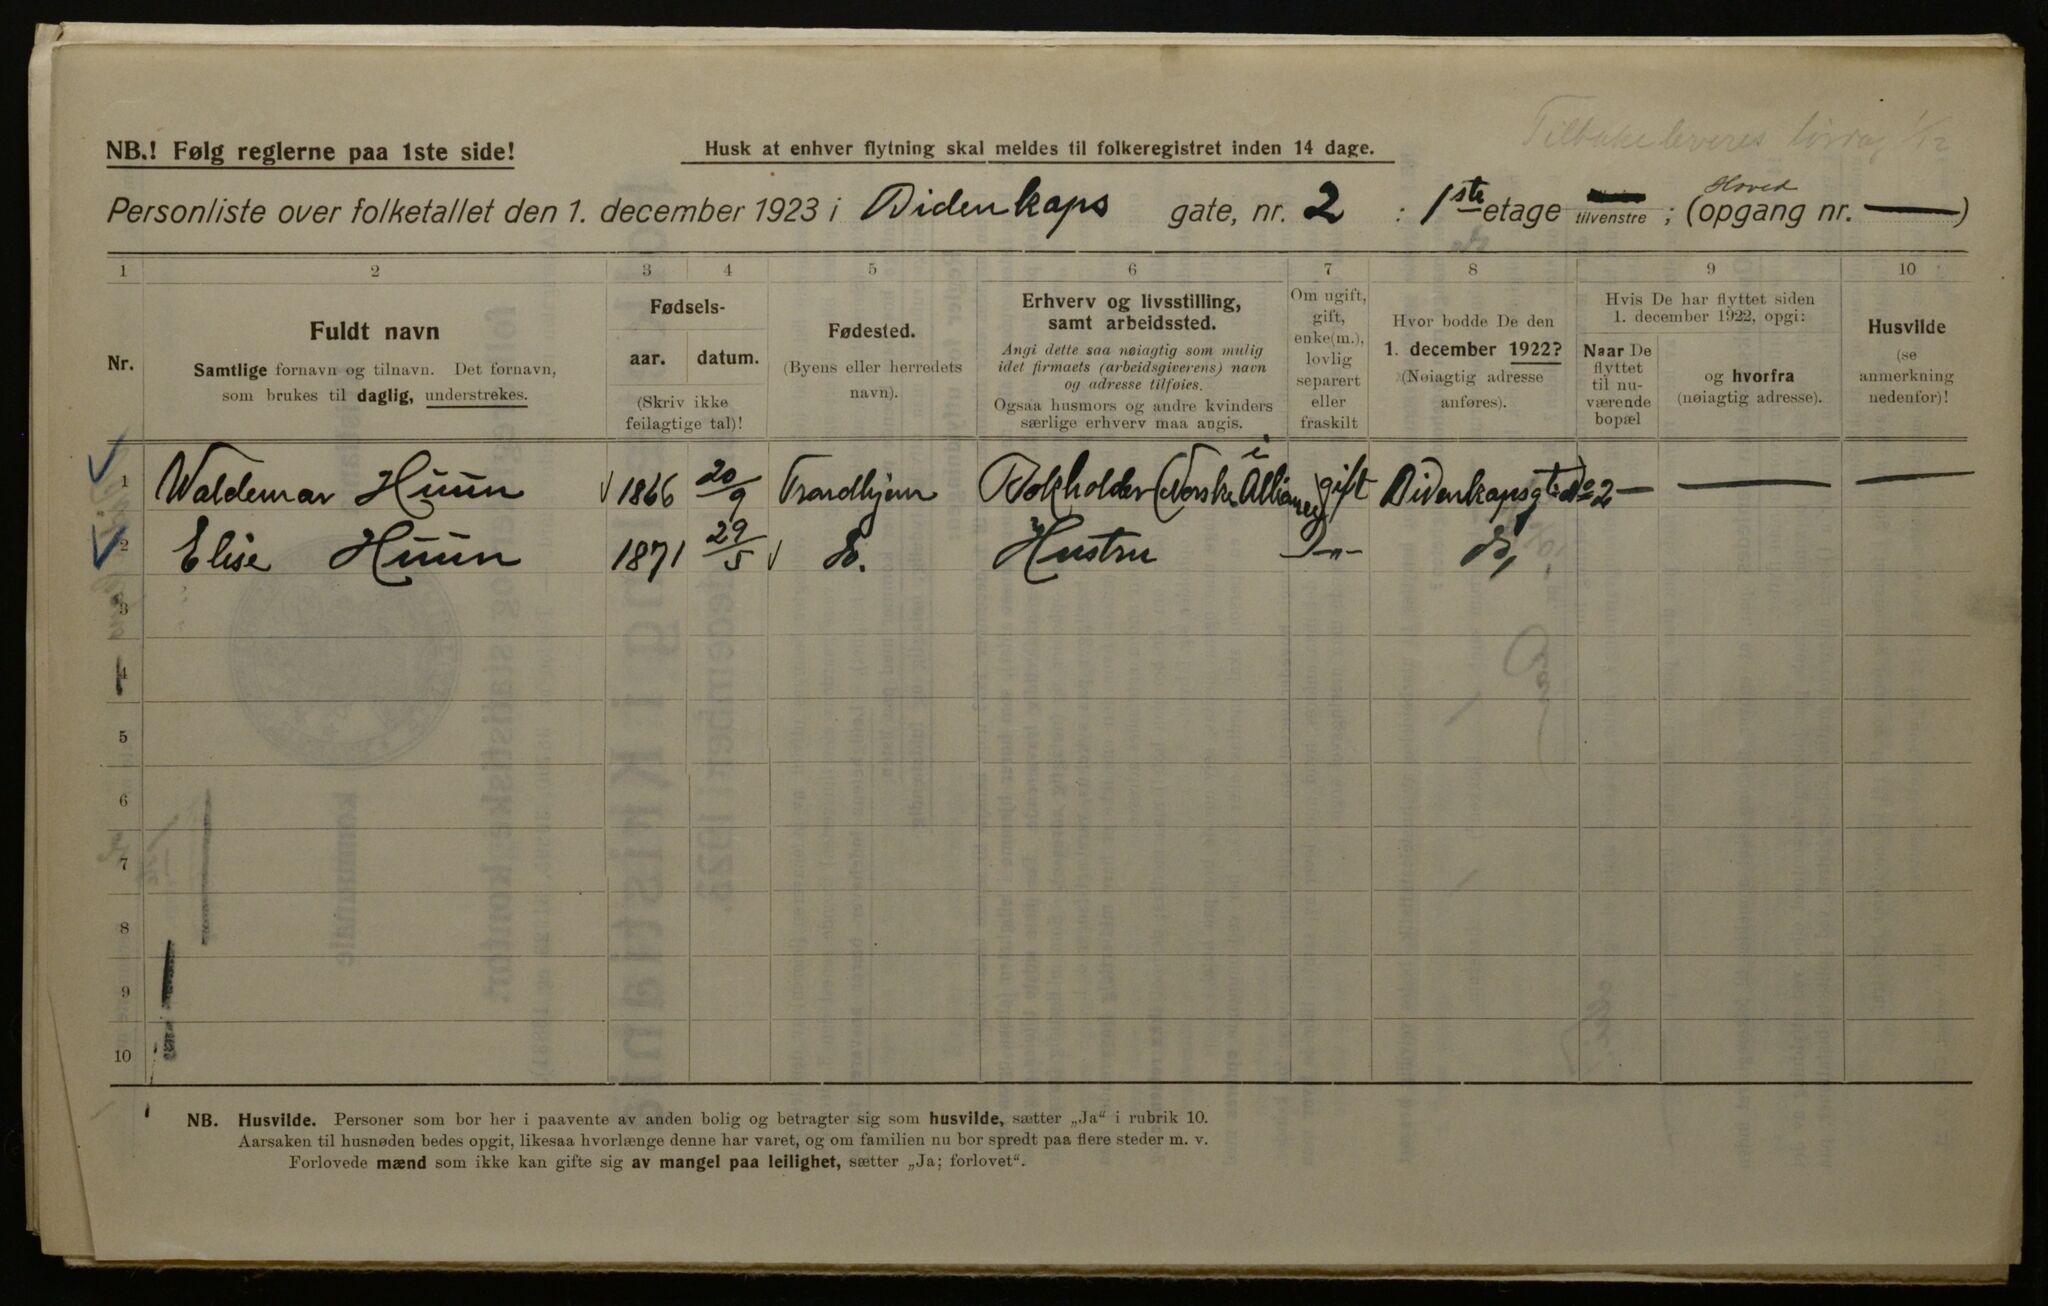 Tilbakeleveres lørdag 1/12
NB.! Følg reglerne paa 1ste side!
Husk at enhver flytning skal meldes til folkeregistret inden 14 dage.
Personliste over folketallet den 1. december 1923 i Bidenkaps gate, nr. 2 : 1ste etage tilvenstre ; (Hoved opgang nr. —)
1 2 3 4 5 6 7 8 9 10
Nr.
Fuldt navn
Samtlige fornavn og tilnavn. Det fornavn,
som brukes til daglig, understrekes.
Fødsels-
aar. datum.
(Skriv ikke
feilagtige tal)!
Fødested.
(Byens eller herredets
navn).
Erhverv og livsstilling,
samt arbeidssted.
Angi dette saa nøiagtig som mulig
idet firmaets (arbeidsgiverens) navn
og adresse tilføies.
Ogsaa husmors og andre kvinders
særlige erhverv maa angis.
Om ugift,
gift,
enke(m.),
lovlig
separert
eller
fraskilt
Hvor bodde De den
1. december 1922?
(Nøiagtig adresse
anføres).
Hvis De har flyttet siden
1. december 1922, opgi:
Naar De
flyttet
til nu-
værende
bopæl
og hvorfra
(nøiagtig adresse).
Husvilde
(se
anmerkning
nedenfor)!
1 Waldemar Huun 1866 20/9 Trondhjem Bokholder i (Norske Alliance) gift Bidenkapsgt. No 2 — — —
2 Elise Huun 1871 29/5 do. Hustru —"— do,
3
4
5
6
7
8
9
10
NB. Husvilde. Personer som bor her i paavente av anden bolig og betragter sig som husvilde, sætter „Ja“ i rubrik 10.
Aarsaken til husnøden bedes opgit, likesaa hvorlænge denne har varet, og om familien nu bor spredt paa flere steder m. v.
Forlovede mænd som ikke kan gifte sig av mangel paa leilighet, sætter „Ja; forlovet“.